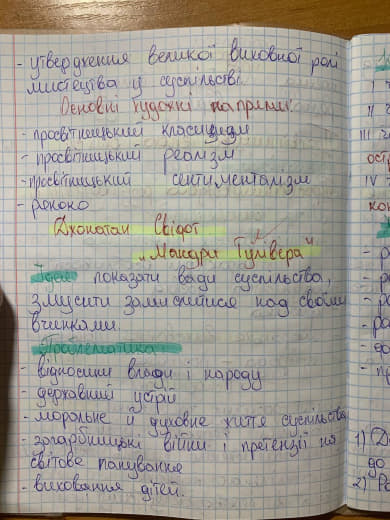 - утвердження великої виховної ролі
мистецтва у суспільстві.
Основні художні напрями:
- просвітницький класицизм
- просвітницький реалізм
- просвітницький сентименталізм
- рококо
Джонатан Свіфт
„Мандри Гулівера"
Ідея: показати вади суспільства,
змусити замислитися над своїми
вчинками.
Проблематика
- відносини влади і народу
- державний устрій
- моральне й духовне життя суспільства
- загарбницькі війни і претензії на
світове панування
- виховання дітей.
I
II
III
IV
1)
2)